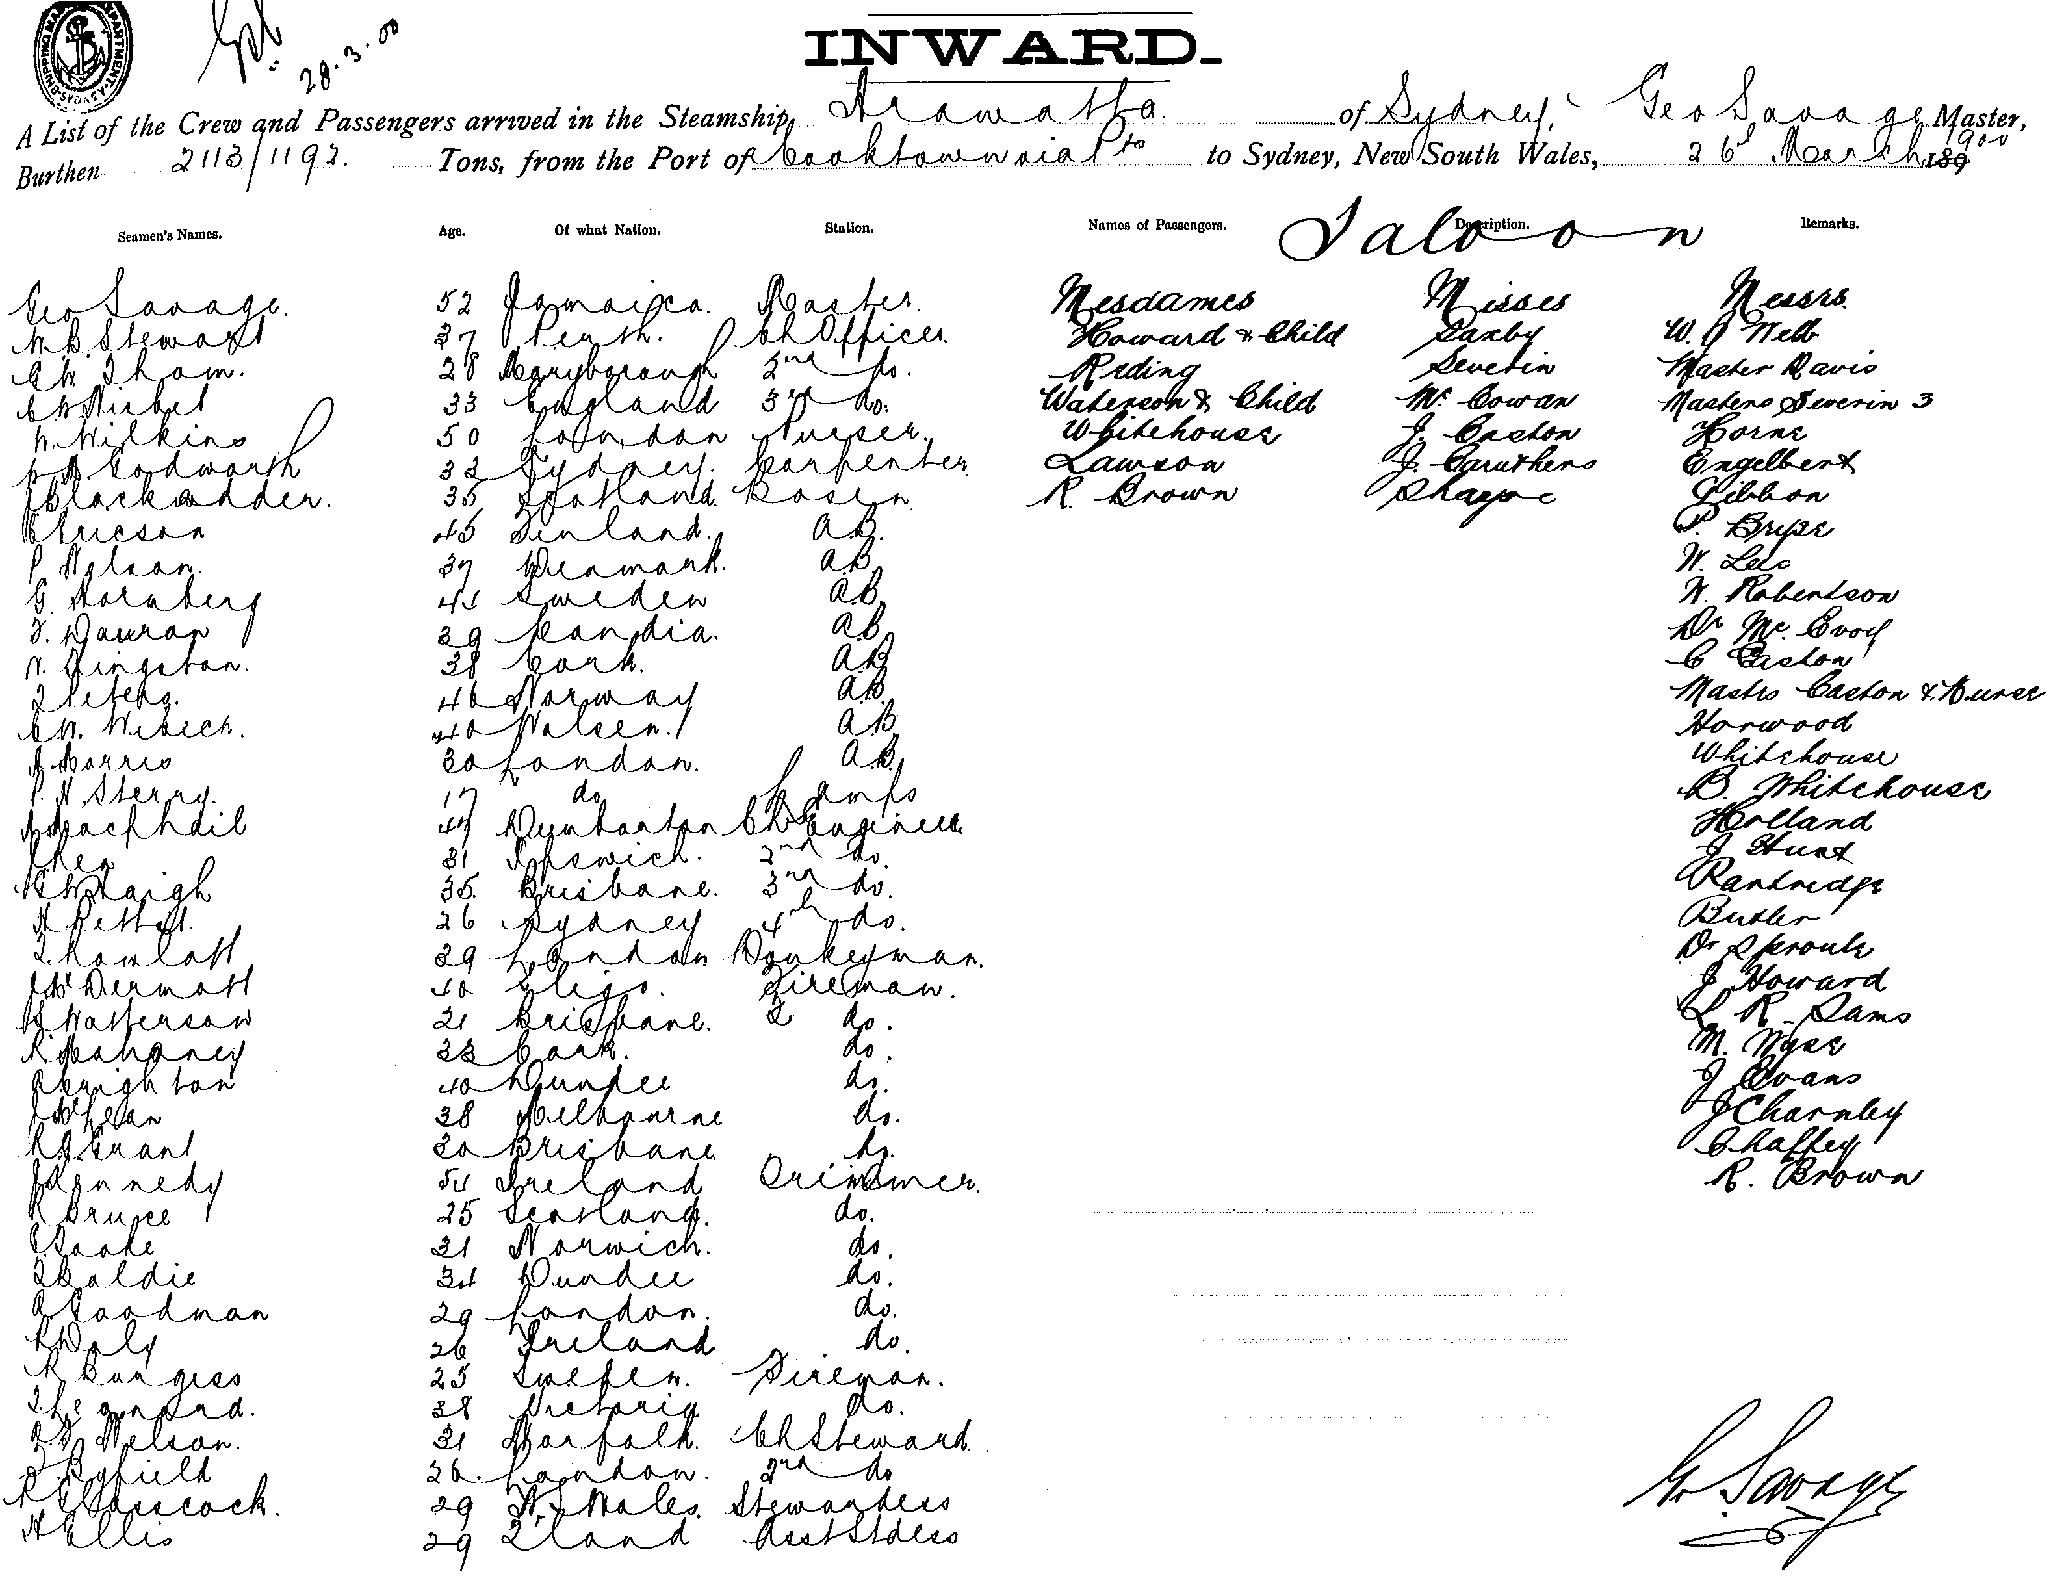 28.3.00
INWARD.
A List of the Crew and Passengers arrived in the Steamship, Arawatta of Sydney, Geo Savage Master,
Burthen 2113/1192. Tons, from the Port of Cooktown via Pts to Sydney, New South Wales, 26 March 1900
Seamen's Names. Age. Of what Nation. Station. Names of Passengers. Description. Remarks.
Saloon
Geo Savage. 52 Jamaica. Master. Mesdames Misses Messrs.
Stewart 37 Perth. Ch Officer. Howard & Child Saxby W.
28 Maryborough 2nd do. Reding Severin Master Davis
Nisbet 33 England 3rd do. Waterson & Child Mc Cowan Masters Severin 3
Wilkins 50 London Purser. Whitehouse J. Easton Horne
Godworth 32 Sydney. Carpenter Lawson J. Caruthers Engelbert
Blackadder. 35 Scotland. Bosen R. Brown Sharpe Gibbon
Ericson 45 Finland. AB. P. Bryse
P. Nelson. 37 Denmark. AB W.
G. Hornberg 41 Sweden AB W. Robertson
29 Candia. AB Dr Mc. Evoy
Kingston. 38 Cork. AB C Easton
Peters. 46 Norway AB Mastrs Easton & Nurse
40 AB Horwood
Morris 30 London. AB. Whitehouse
Sterry. 17 do Lamps B. Whitehouse
Macphail 47 Dumbarton Ch Engineer Holland
31 Ipswich. 2nd do. J Hunt
Haigh 35. Brisbane. 3rd do. Rantridge
Pettet. 26 Sydney 4th do. Butler
Rowlatt 39 London Donkeyman. Dr Sproule
J McDermott 40 Sligo. Fireman. J Howard
Watterson 21 Brisbane. do. L. R. Sams
Mahoney 33 Cork. do. M. Wyse
Crighton 40 Dundee do. J Evans
38 Melbourne do. J Charnley
Grant 30 Brisbane do. Chaffey
Kennedy 51 Ireland Trimmer. R. Brown
Bruce 25 Scotland. do.
31 Norwich. do.
Goldie 34 Dundee do.
Goodman 29 London. do.
Daly 26 Ireland do.
R Burgess 25 Sweden. Fireman.
Leonard. 38 Victoria do.
Nelson. 31 Norfolk. Ch Steward.
Byfield 26. London. 2nd do
Glasscock. 29 N. S. Wales. Stewardess
Ellis 29 Qland Asst Stdess
Geo Savage